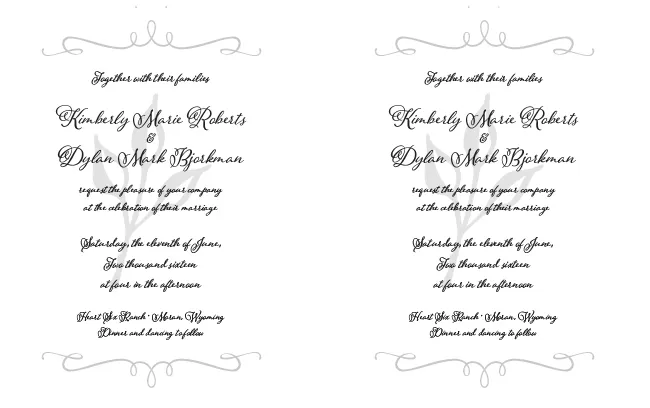 Together with their families
Kimberly Marie Roberts
&
Dylan Mark Bjorkman
request the pleasure of your company
at the celebration of their marriage
Saturday, the eleventh of June,
Two thousand sixteen
at four in the afternoon
Heart Six Ranch · Moran, Wyoming
Dinner and dancing to follow
Together with their families
Kimberly Marie Roberts
&
Dylan Mark Bjorkman
request the pleasure of your company
at the celebration of their marriage
Saturday, the eleventh of June,
Two thousand sixteen
at four in the afternoon
Heart Six Ranch · Moran, Wyoming
Dinner and dancing to follow